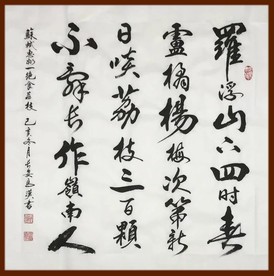 羅浮山下四时春
盧橘楊梅次第新
日啖荔枝三百顆
不辞长作嶺南人
蘇軾惠州一绝食荔枝 己亥冬月 漢書